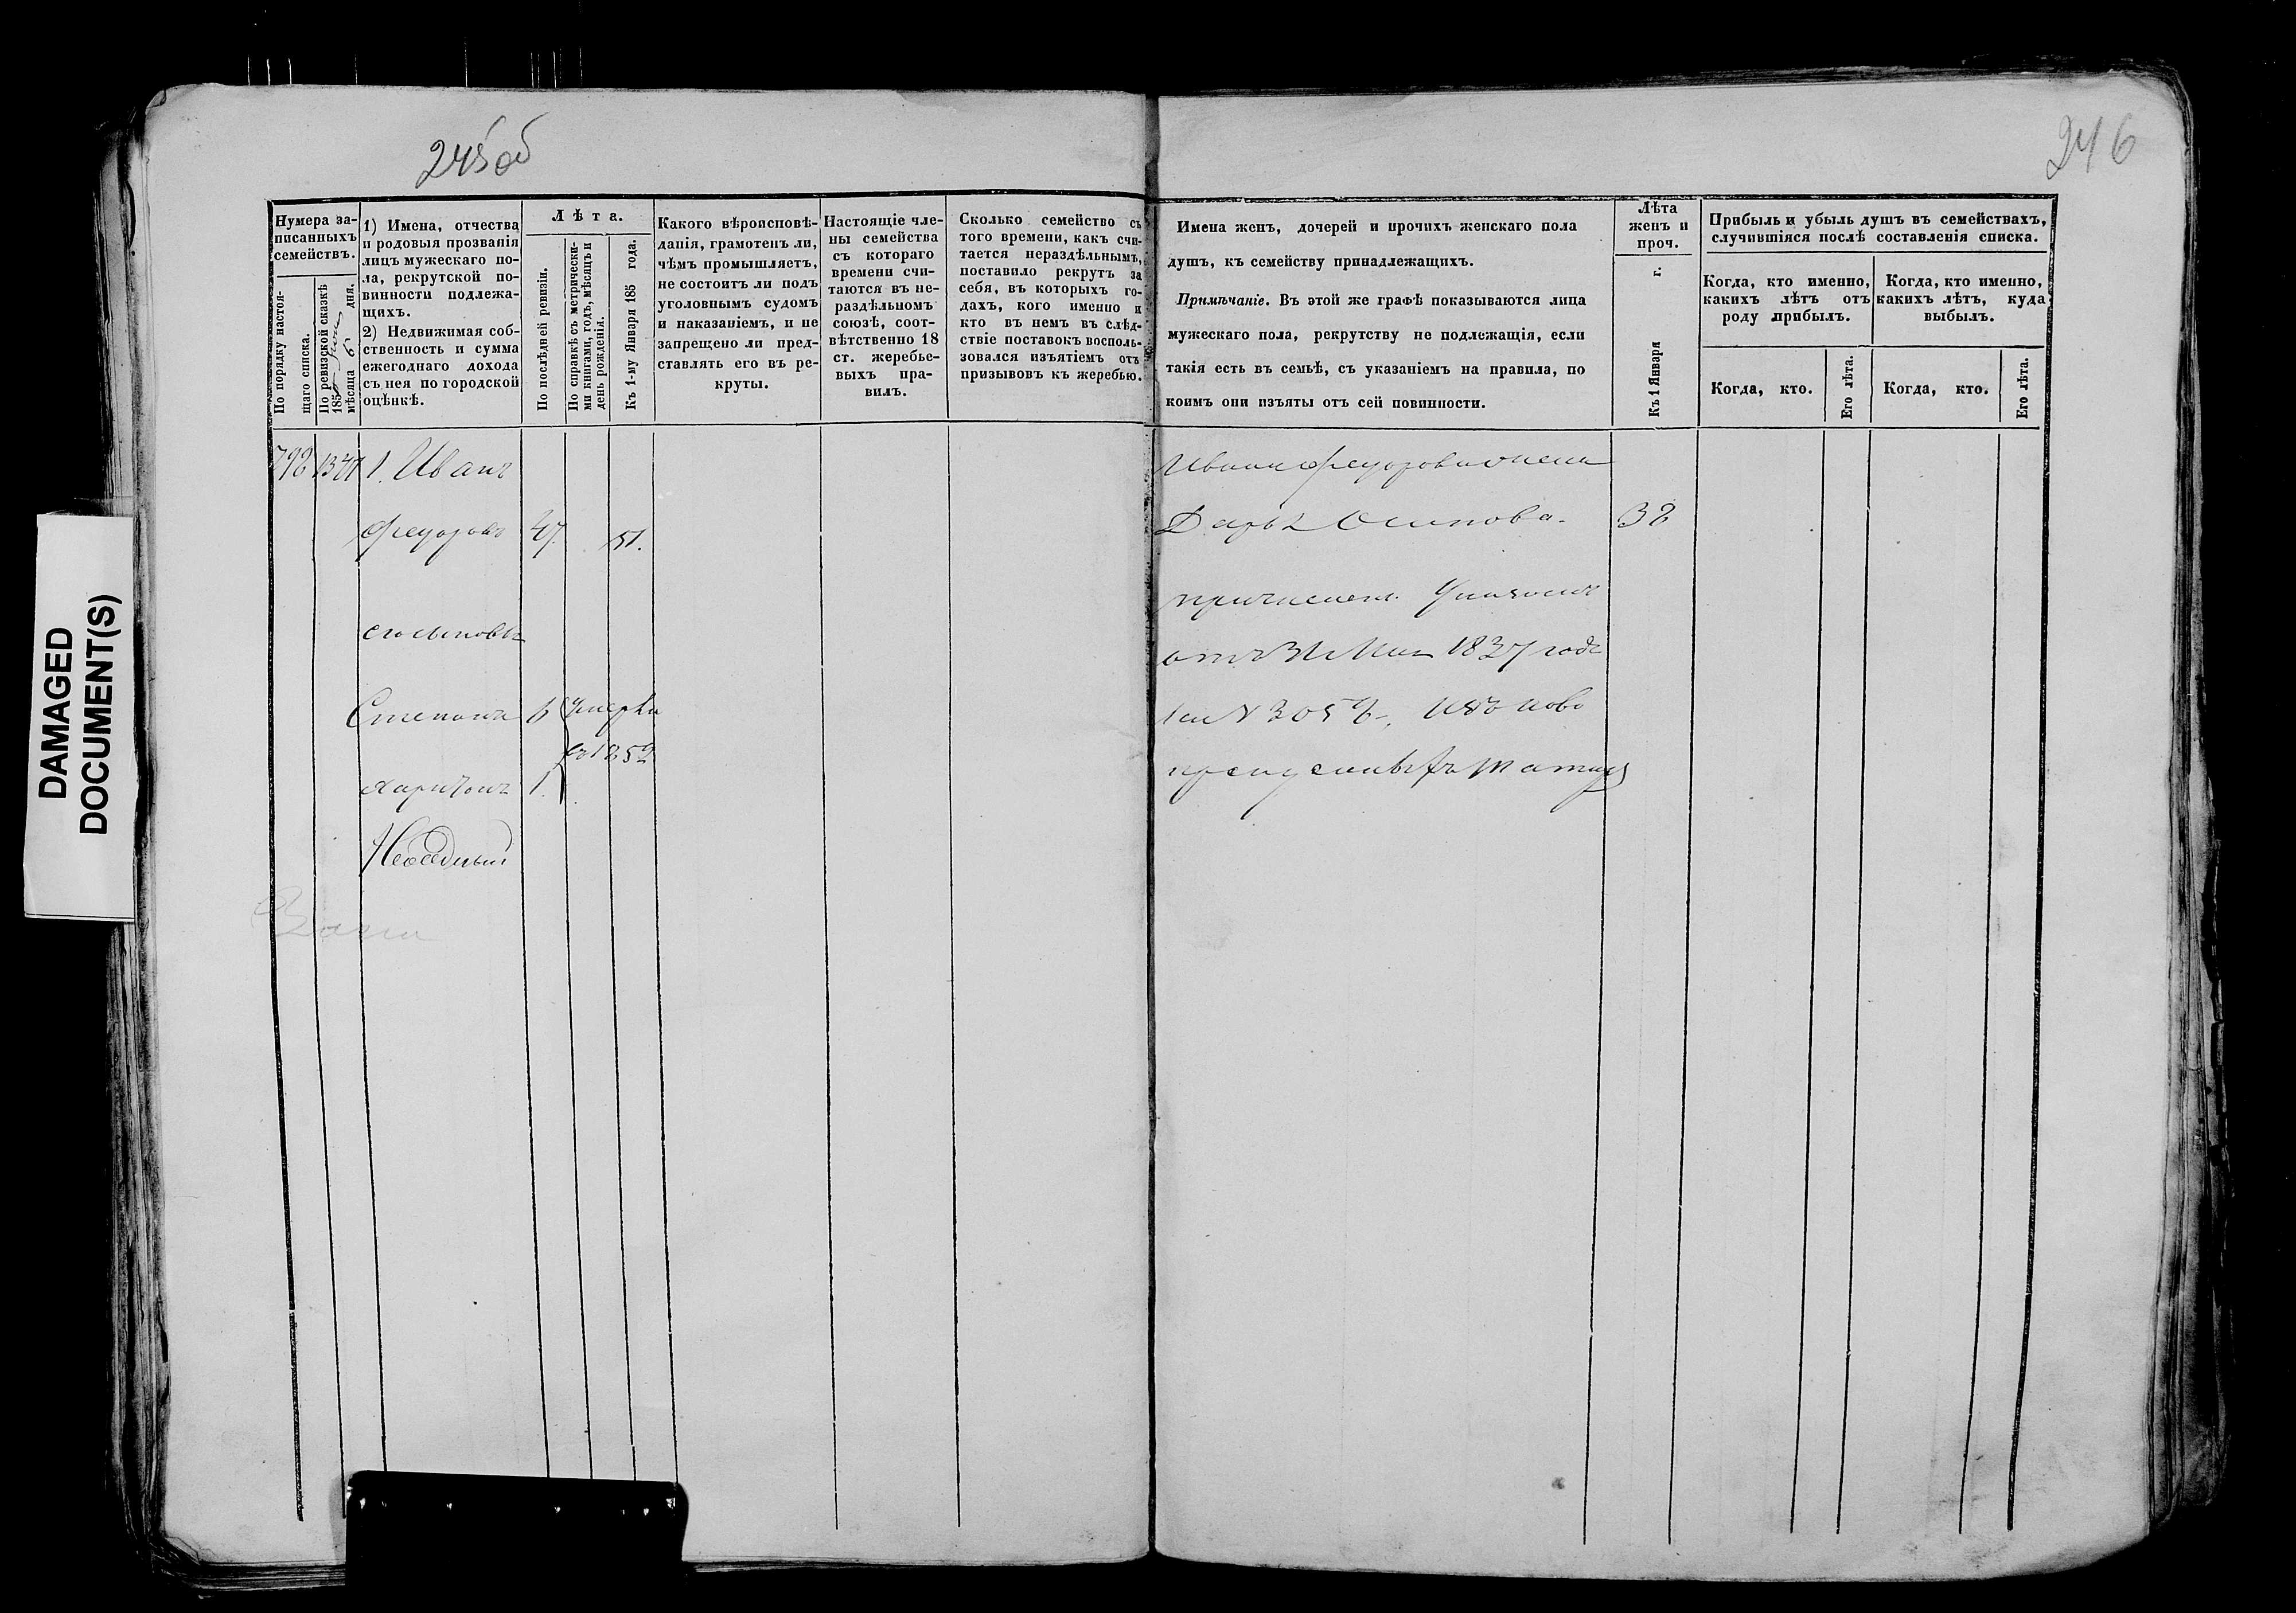 245 об
246
DAMAGED
DOCUMENT(S)
Нумера за-
писанныхъ
семействъ.
По порядку настоя-
щаго списка.
По ревизской сказкѣ
185
мѣсяца 6 дня.
1) Имена, отчества
и родовыя прозванія
лицъ мужескаго по-
ла, рекрутской по-
винности подлежа-
щихъ.
2) Недвижимая соб-
ственность и сумма
ежегоднаго дохода
съ нея по городской
оцѣнкѣ.
Лѣта.
По послѣдней ревизіи.
По справкѣ съ метрически-
ми книгами, годъ, мѣсяцъ и
день рожденія.
Къ 1-му Января 185 года.
Какого вѣроисповѣ-
данія, грамотенъ ли,
чѣмъ промышляетъ,
не состоитъ ли подъ
уголовнымъ судомъ
и наказаніемъ, и не
запрещено ли пред-
ставлять его въ ре-
круты.
Настоящіе чле-
ны семейства
съ котораго
времени счи-
таются въ не-
раздѣльномъ
союзѣ, соот-
вѣтственно 18
ст. жеребье-
выхъ пра-
вилъ.
Сколько семейство съ
того времени, какъ счи-
тается нераздѣльнымъ,
поставило рекрутъ за
себя, въ которыхъ го-
дахъ, кого именно и
кто въ немъ въ слѣд-
ствіе поставокъ восполь-
зовался изъятіемъ отъ
призывовъ къ жеребью.
Имена женъ, дочерей и прочихъ женскаго пола
душъ, къ семейству принадлежащихъ.
Примѣчаніе. Въ этой же графѣ показываются лица
мужескаго пола, рекрутству не подлежащія, если
такія есть въ семьѣ, съ указаніемъ на правила, по
коимъ они изъяты отъ сей повинности.
Лѣта
женъ и
проч.
Къ 1 Января г.
Прибыль и убыль душъ въ семействахъ,
случившіяся послѣ составленія списка.
Когда, кто именно,
какихъ лѣтъ отъ
роду прибылъ.
Когда, кто именно,
какихъ лѣтъ, куда
выбылъ.
Когда, кто.
Его лѣта.
Когда, кто.
Его лѣта.
792 1347 1. Иванъ
Федоровъ 47. 51.
его сыновья
Степанъ 6 умерли
въ 1852
Харитонъ 1.
Ивана Федорова жена
Дарья Осипова. 38
причисленъ Указомъ
отъ 31 Мая 1837 года
за № 3052, изъ ново